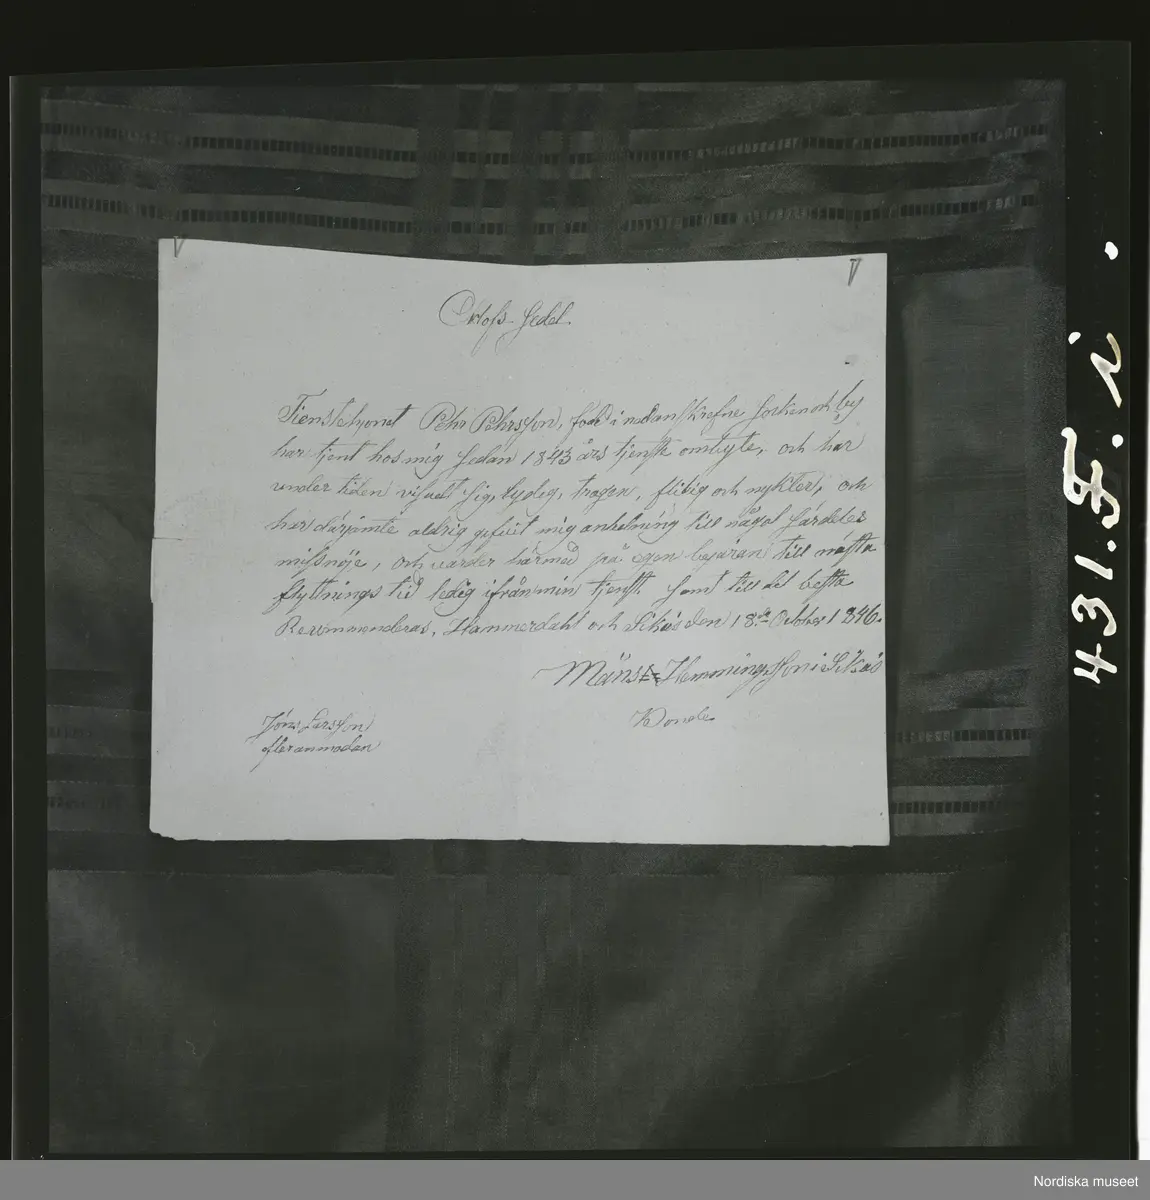 Orlofs-Sedel
Tienstehionet Pehr Pehrsson, född i nedanskrefne Socken och by
har tjent hos mig sedan 1843 års tjenste ombyte, och har
under tiden visuat sig, lydig, trogen, flitig och nykter, och
har därjämte aldrig gifvit mig anledning till något särdeles
missnöje, och varder härmed på egen begäran till nästa
flyttnings tid ledig ifrån min tjenst samt till det bästa
Recommenderas, Hammerdahl och Sikås den 18de October 1846.
Måns Hemmingsson i Sikås
Bonde
Jöns Larsson
431.F.i.
Nordiska museet